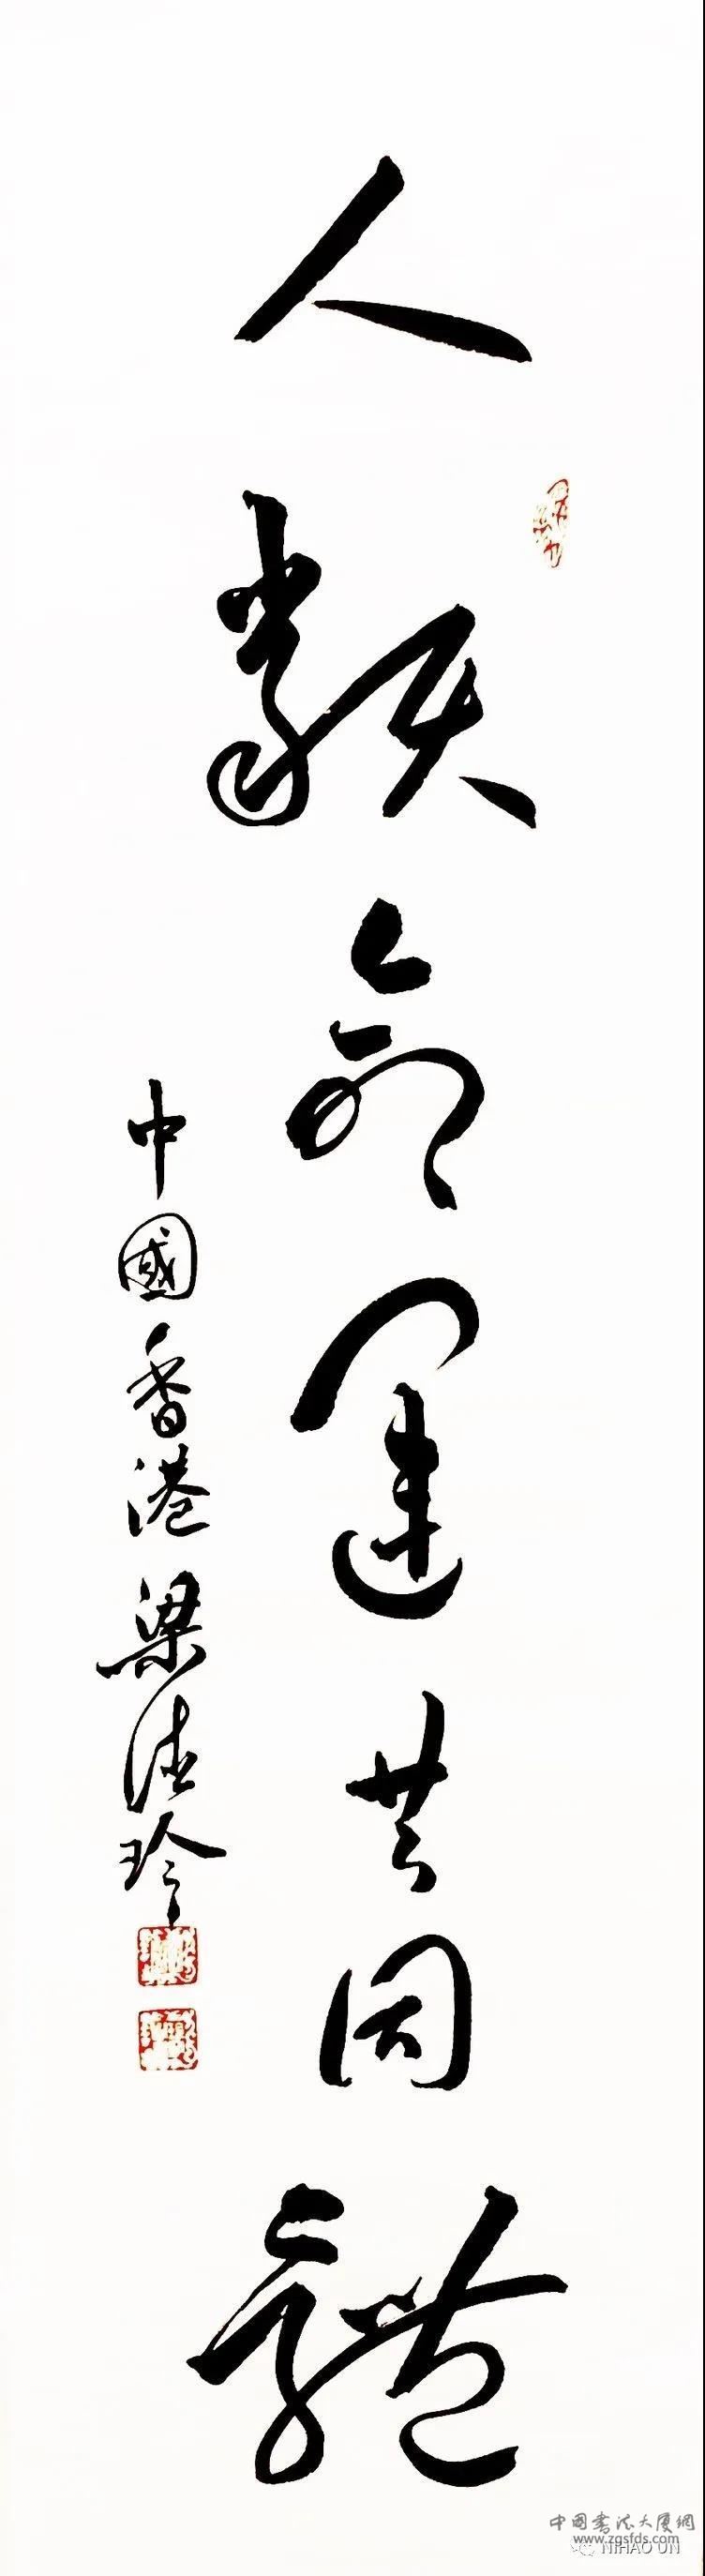 人類命運共同體
中國香港梁法玲
中国书法大厦網
www.zgsfds.com
NIHAO UN